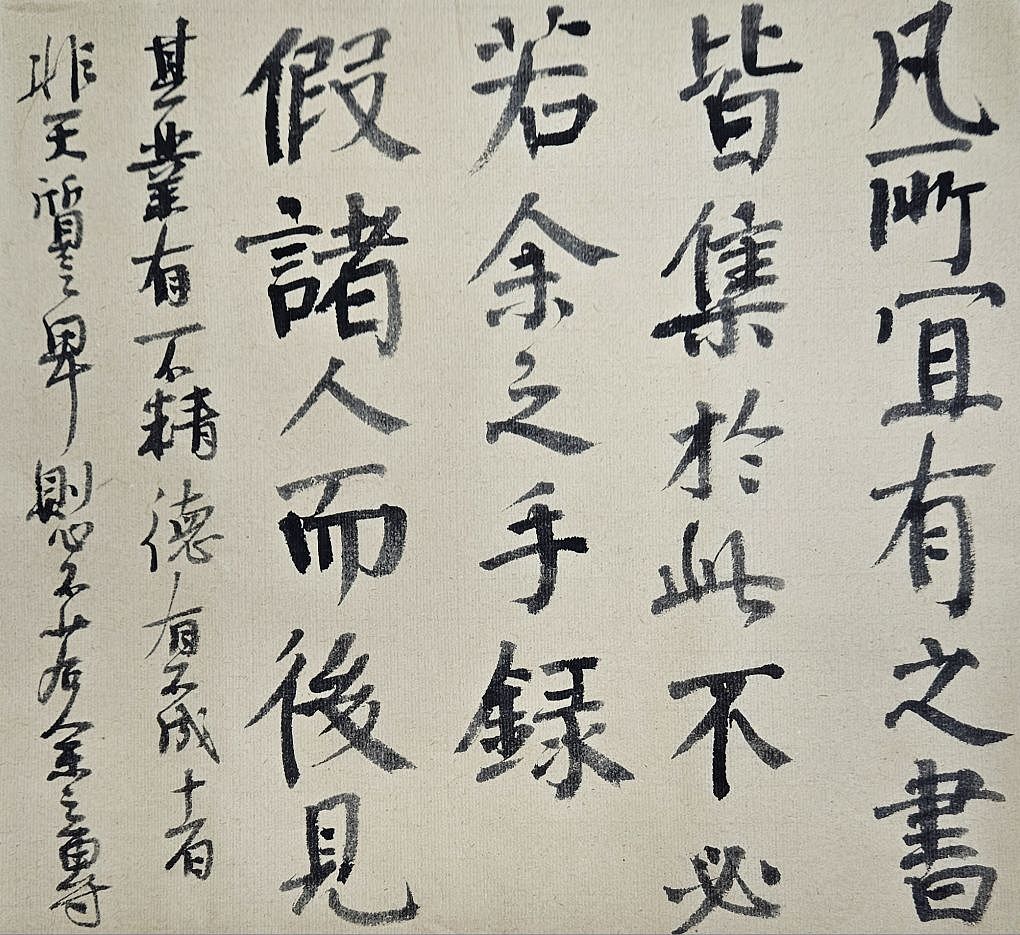 凡所宜有之書
皆集於此不必
若余之手錄
假諸人而後見
其業有不精德有不成者
非天質之卑則心不若余之專